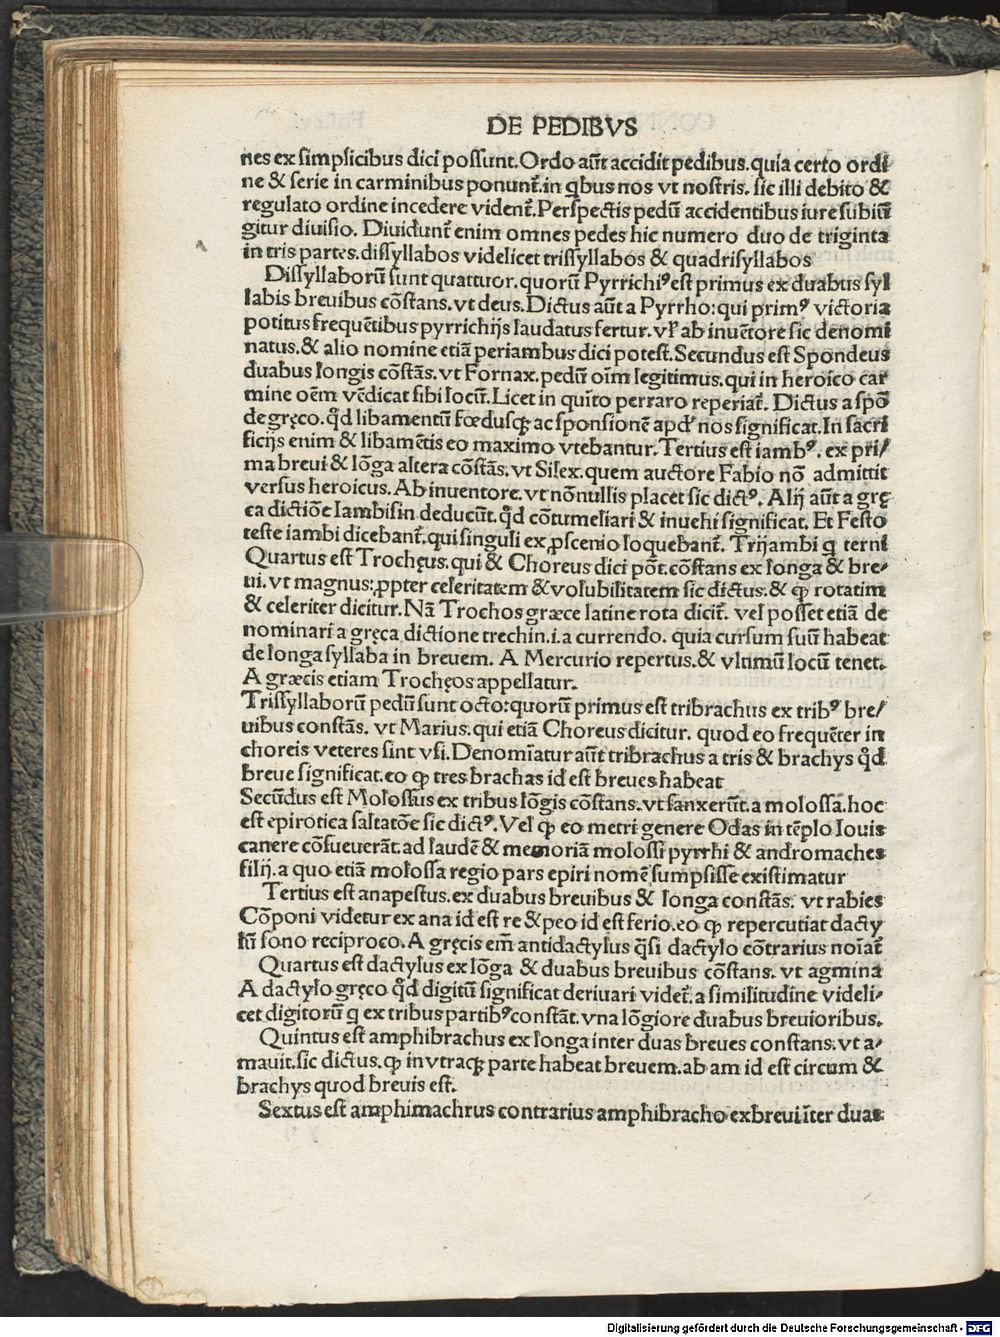 DE PEDIBVS
nes ex simplicibus dici possunt. Ordo aūt accidit pedibus. quia certo ordi
ne & serie in carminibus ponunt᷑. in qbus nos vt nostris. sic illi debito &
regulato ordine incedere vident᷑. Perspectis pedū accidentibus iure subiū
gitur diuisio. Diuidunt᷑ enim omnes pedes hic numero duo de triginta
in tris partes. dissyllabos videlicet trissyllabos & quadrisyllabos
Dissyllaborū sunt quattuor. quorū Pyrrichiꝰ est primus ex duabus syl
labis breuibus cōstans. vt deus. Dictus aūt a Pyrrho: qui primꝰ victoria
potitus frequētibus pyrrichijs laudatus fertur. vl̓ ab inuētore sic denomi
natus. & alio nomine etiā periambus dici potest. Secundus est Spondeus
duabus longis cōstās. vt Fornax. pedū oīm legitimus. qui in heroico car
mine oēm vēdicat sibi locū. Licet in quito perraro reperiat᷑. Dictus a spō
de gręco. qd̓ libamentū fœdusqꝫ ac sponsionē apd̓ nos significat. In sacri
ficijs enim & libamētis eo maximo vtebantur. Tertius est iambꝰ. ex pri/
ma breui & lōga altera cōstās. vt Silex. quem auctore Fabio nō admittit
versus heroicus. Ab inuentore. vt nōnullis placet sic dictꝰ. Alij aūt a grę
ca dictiōe Iambisin deducūt. qd̓ cōtumeliari & inuehi significat. Et Festo
teste iambi dicebant᷑. qui singuli ex ꝓscenio loquebant᷑. Trijambi q terni
Quartus est Trochęus. qui & Choreus dici pōt. cōstans ex longa & bre/
ui. vt magnus: ꝓpter celeritatem & volubilitatem sic dictus. & ꝙ rotatim
& celeriter dicitur. Nā Trochos græce latine rota dicit᷑. vel posset etiā de
nominari a gręca dictione trechin. i. a currendo. quia cursum suū habeat
de longa syllaba in breuem. A Mercurio repertus. & vltimū locū tenet.
A græcis etiam Trochęos appellatur.
Trissyllaborū pedū sunt octo: quorū primus est tribrachus ex tribꝰ bre/
uibus constās. vt Marius. qui etiā Choreus dicitur. quod eo frequēter in
choreis veteres sint vsi. Denomīatur aūt tribrachus a tris & brachys qd̓
breue significat. eo ꝙ tres brachas id est breues habeat
Secūdus est Molossus ex tribus lōgis cōstans. vt sanxerūt. a molossa. hoc
est epirotica saltatōe sic dictꝰ. Vel ꝙ eo metri genere Odas in tēplo Iouis
canere cōsueuerāt. ad laudē & memoriā molossi pyrrhi & andromaches
filij. a quo etiā molossa regio pars epiri nomē sumpsisse existimatur
Tertius est anapestus. ex duabus breuibus & longa constās. vt rabies
Cōponi videtur ex ana id est re & peo id est ferio. eo ꝙ repercutiat dacty
lū sono reciproco. A gręcis em̄ antidactylus qsi dactylo cōtrarius noīat᷑
Quartus est dactylus ex lōga & duabus breuibus cōstans. vt agmina
A dactylo gręco qd̓ digitū significat deriuari videt᷑. a similitudine videli/
cet digitorū q ex tribus partibꝰ constāt. vna lōgiore duabus breuioribus.
Quintus est amphibrachus ex longa inter duas breues constans. vt a/
mauit. sic dictus. ꝙ in vtraqꝫ parte habeat breuem. ab am id est circum &
brachys quod breuis est.
Sextus est amphimachrus contrarius amphibracho ex breui īter duas
Digitalisierung gefördert durch die Deutsche Forschungsgemeinschaft - DFG